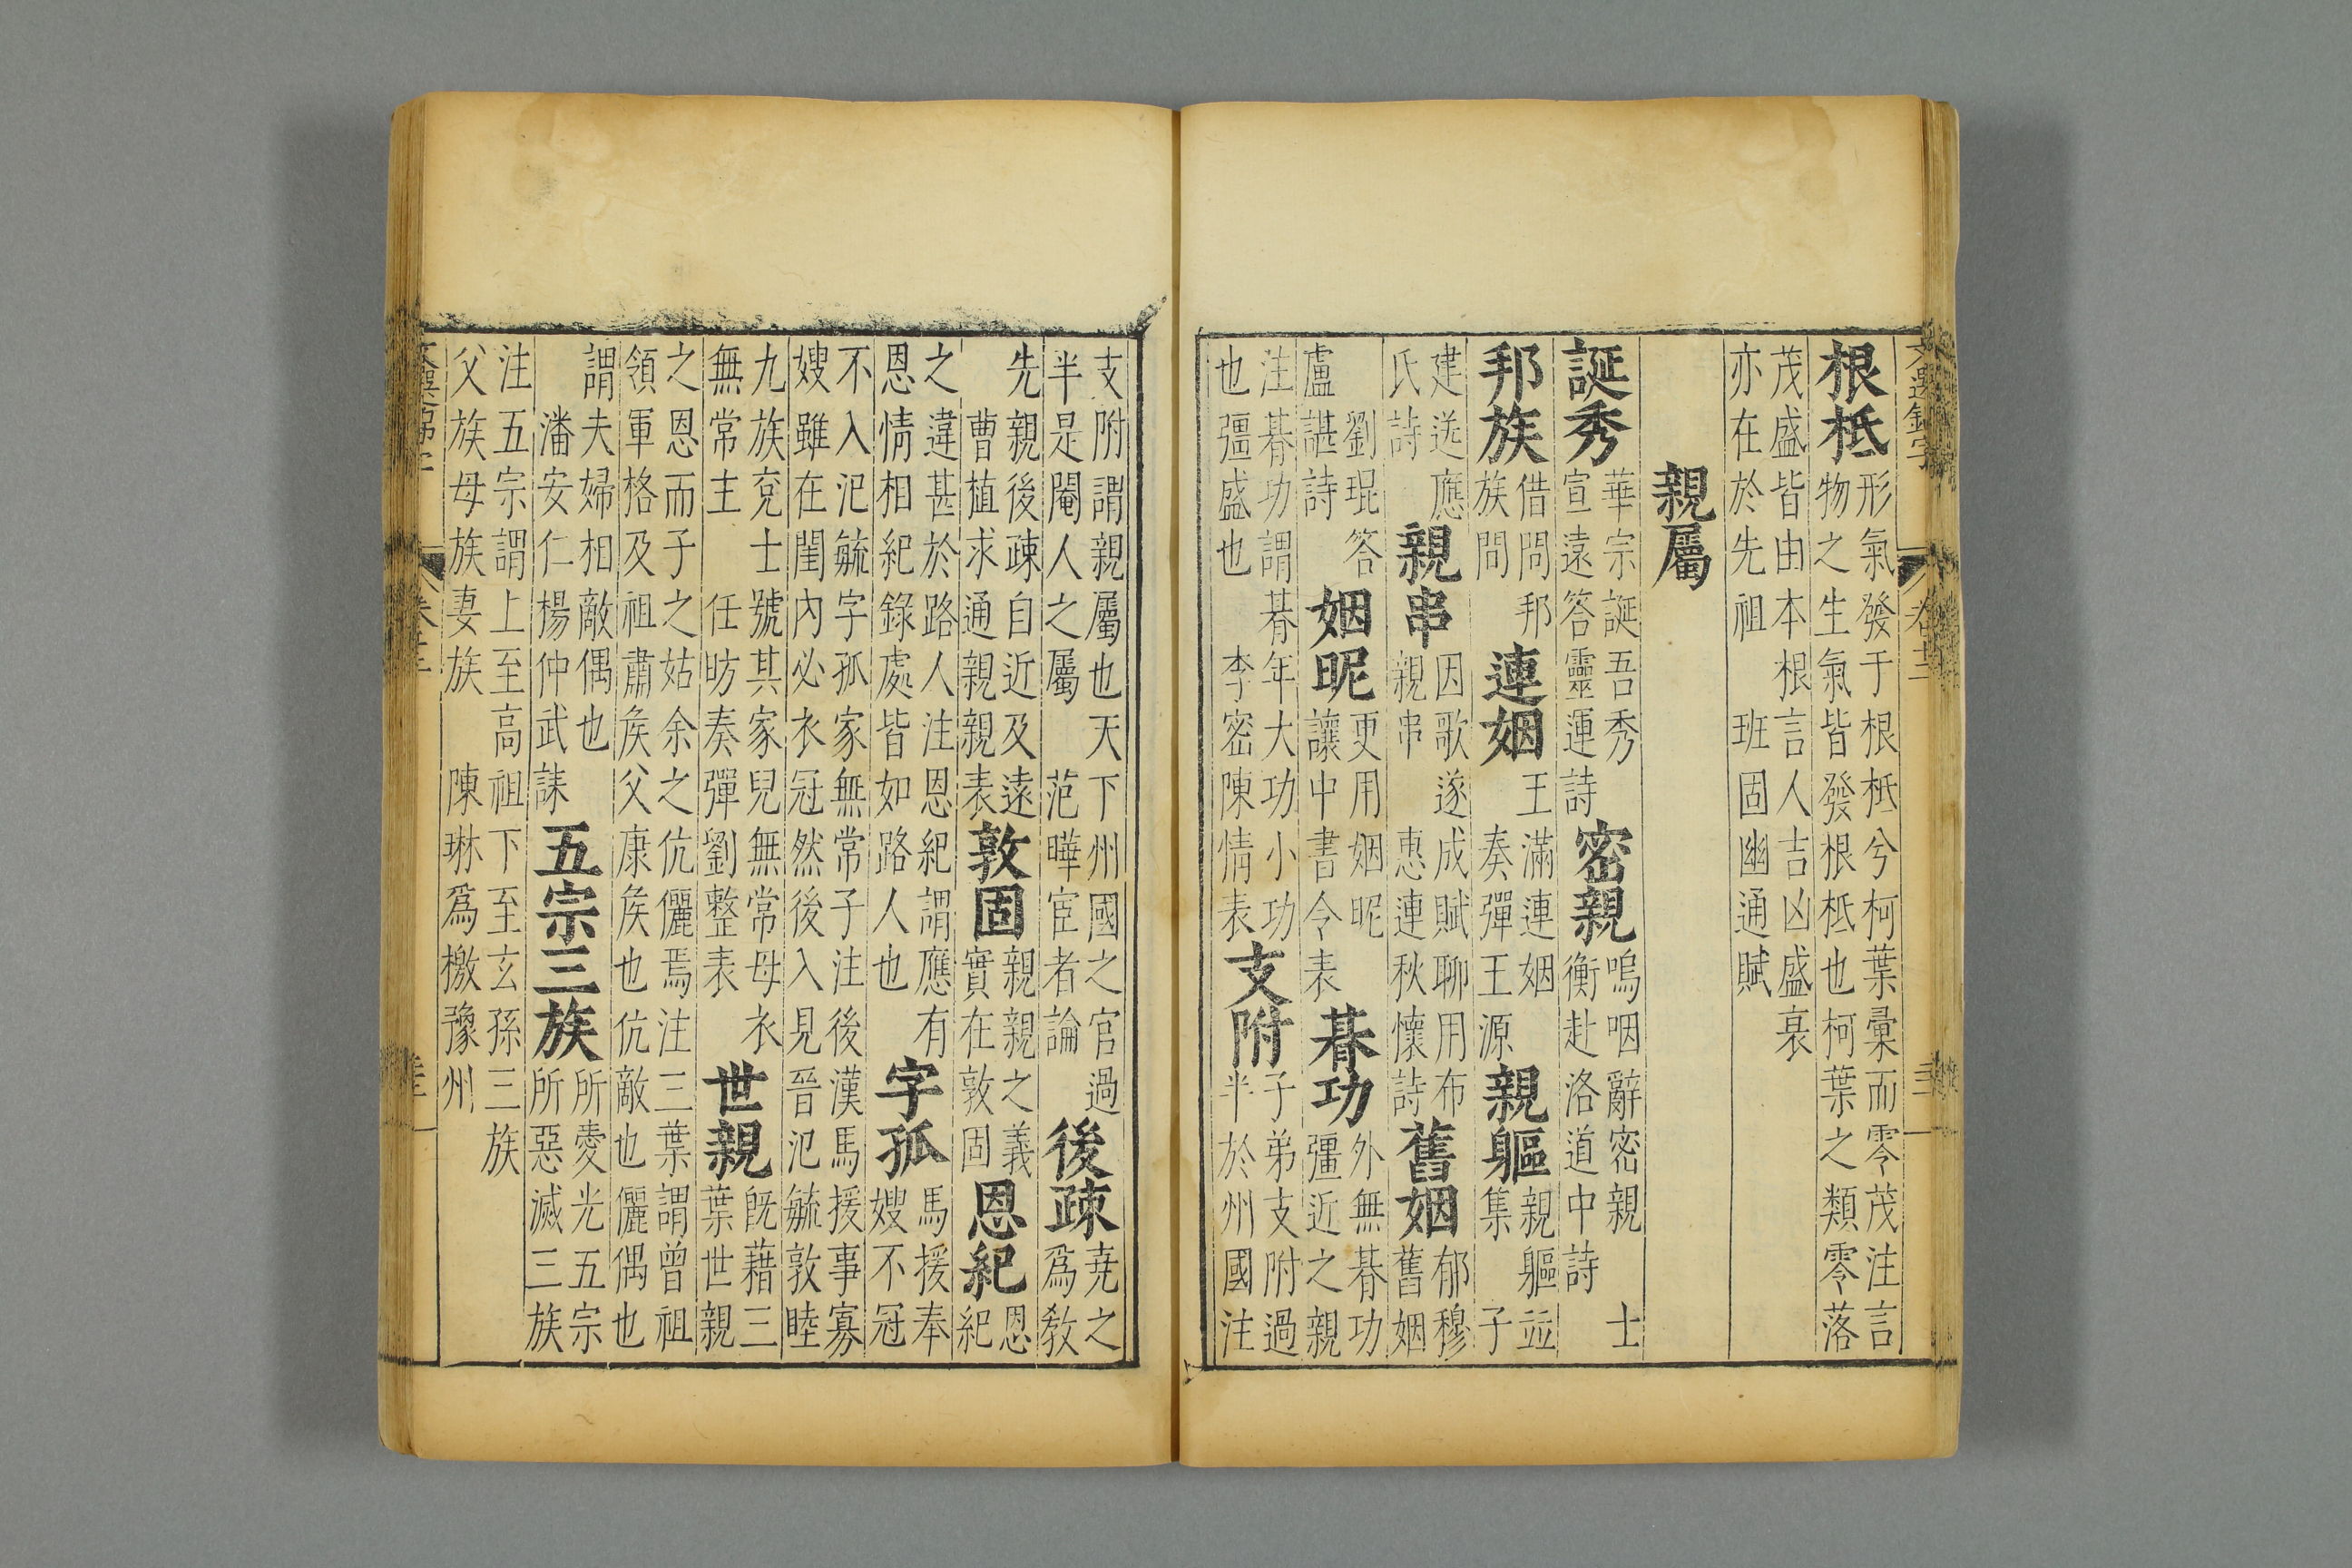 根柢形氣發于根柢兮柯葉彙而零茂注言物之生氣皆發根柢也柯葉之類零落
茂盛皆由本根言人吉凶盛衰亦在於先祖 班固幽通賦
親屬
誕秀華宗誕吾秀宣遠答靈運詩密親嗚咽辭密親 士衡赴洛道中詩
邦族借問邦族問連姻王滿連姻奏彈王源親軀親軀並集 子
建送應氏詩親串因歌遂成賦聊用布親串 惠連秋懷詩舊姻郁穆舊姻
劉琨答盧諶詩姻昵更用姻昵讓中書令表朞功外無朞功彊近之親
注朞功謂朞年大功小功也彊盛也 李密陳情表支附子弟支附過半於州國注
支附謂親屬也天下州國之官過半是閹人之屬 范曄宦者論後疎堯之爲敎
先親後疎自近及遠曹植求通親親表敦固親親之義實在敦固恩紀恩紀
之違甚於路人注恩紀謂應有恩情相紀錄處皆如路人也字孤馬援奉嫂不冠
不入汜毓字孤家無常子注後漢馬援事寡嫂雖在閨內必衣冠然後入見晉汜毓敦睦
九族兗士號其家兒無常母衣無常主 任昉奏彈劉整表世親旣藉三葉世親
之恩而子之姑余之伉儷焉注三葉謂曾祖領軍格及祖肅矦父康矦也伉敵也儷偶也
謂夫婦相敵偶也潘安仁楊仲武誄五宗三族所愛光五宗所惡滅三族
注五宗謂上至高祖下至玄孫三族父族母族妻族 陳琳爲檄豫州